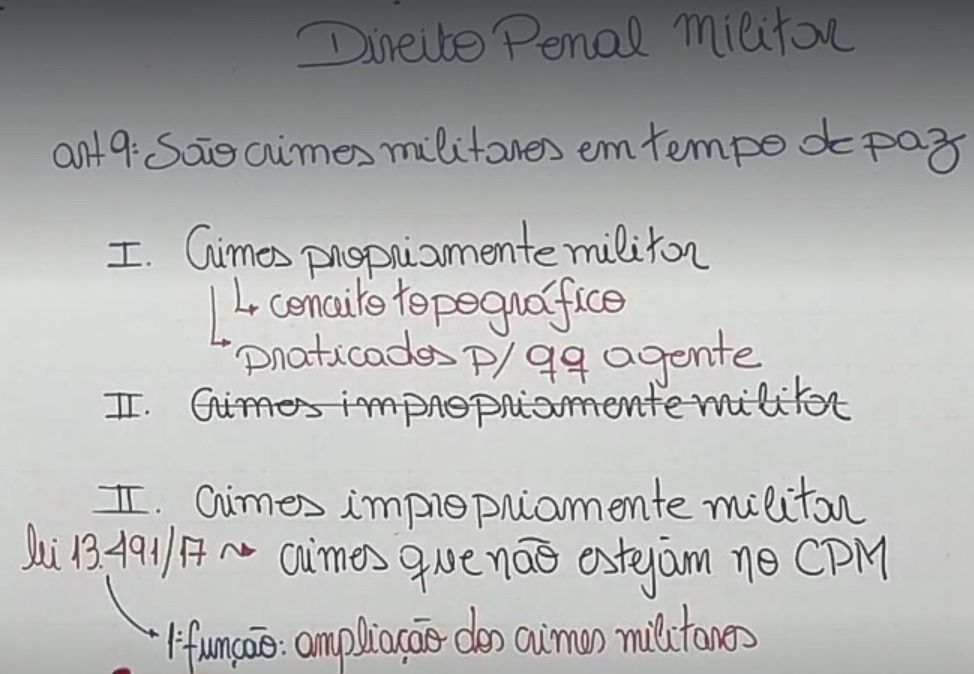 Direito Penal Militar
art 9: São crimes militares em tempo de paz
I. Crimes propriamente militar
↳ conceito topográfico
↳ praticados p/ qq agente
II. Crimes impropriamente militar
II. Crimes impropriamente militar
lei 13.491/17 ~> crimes que não estejam no CPM
1ª função: ampliação dos crimes militares